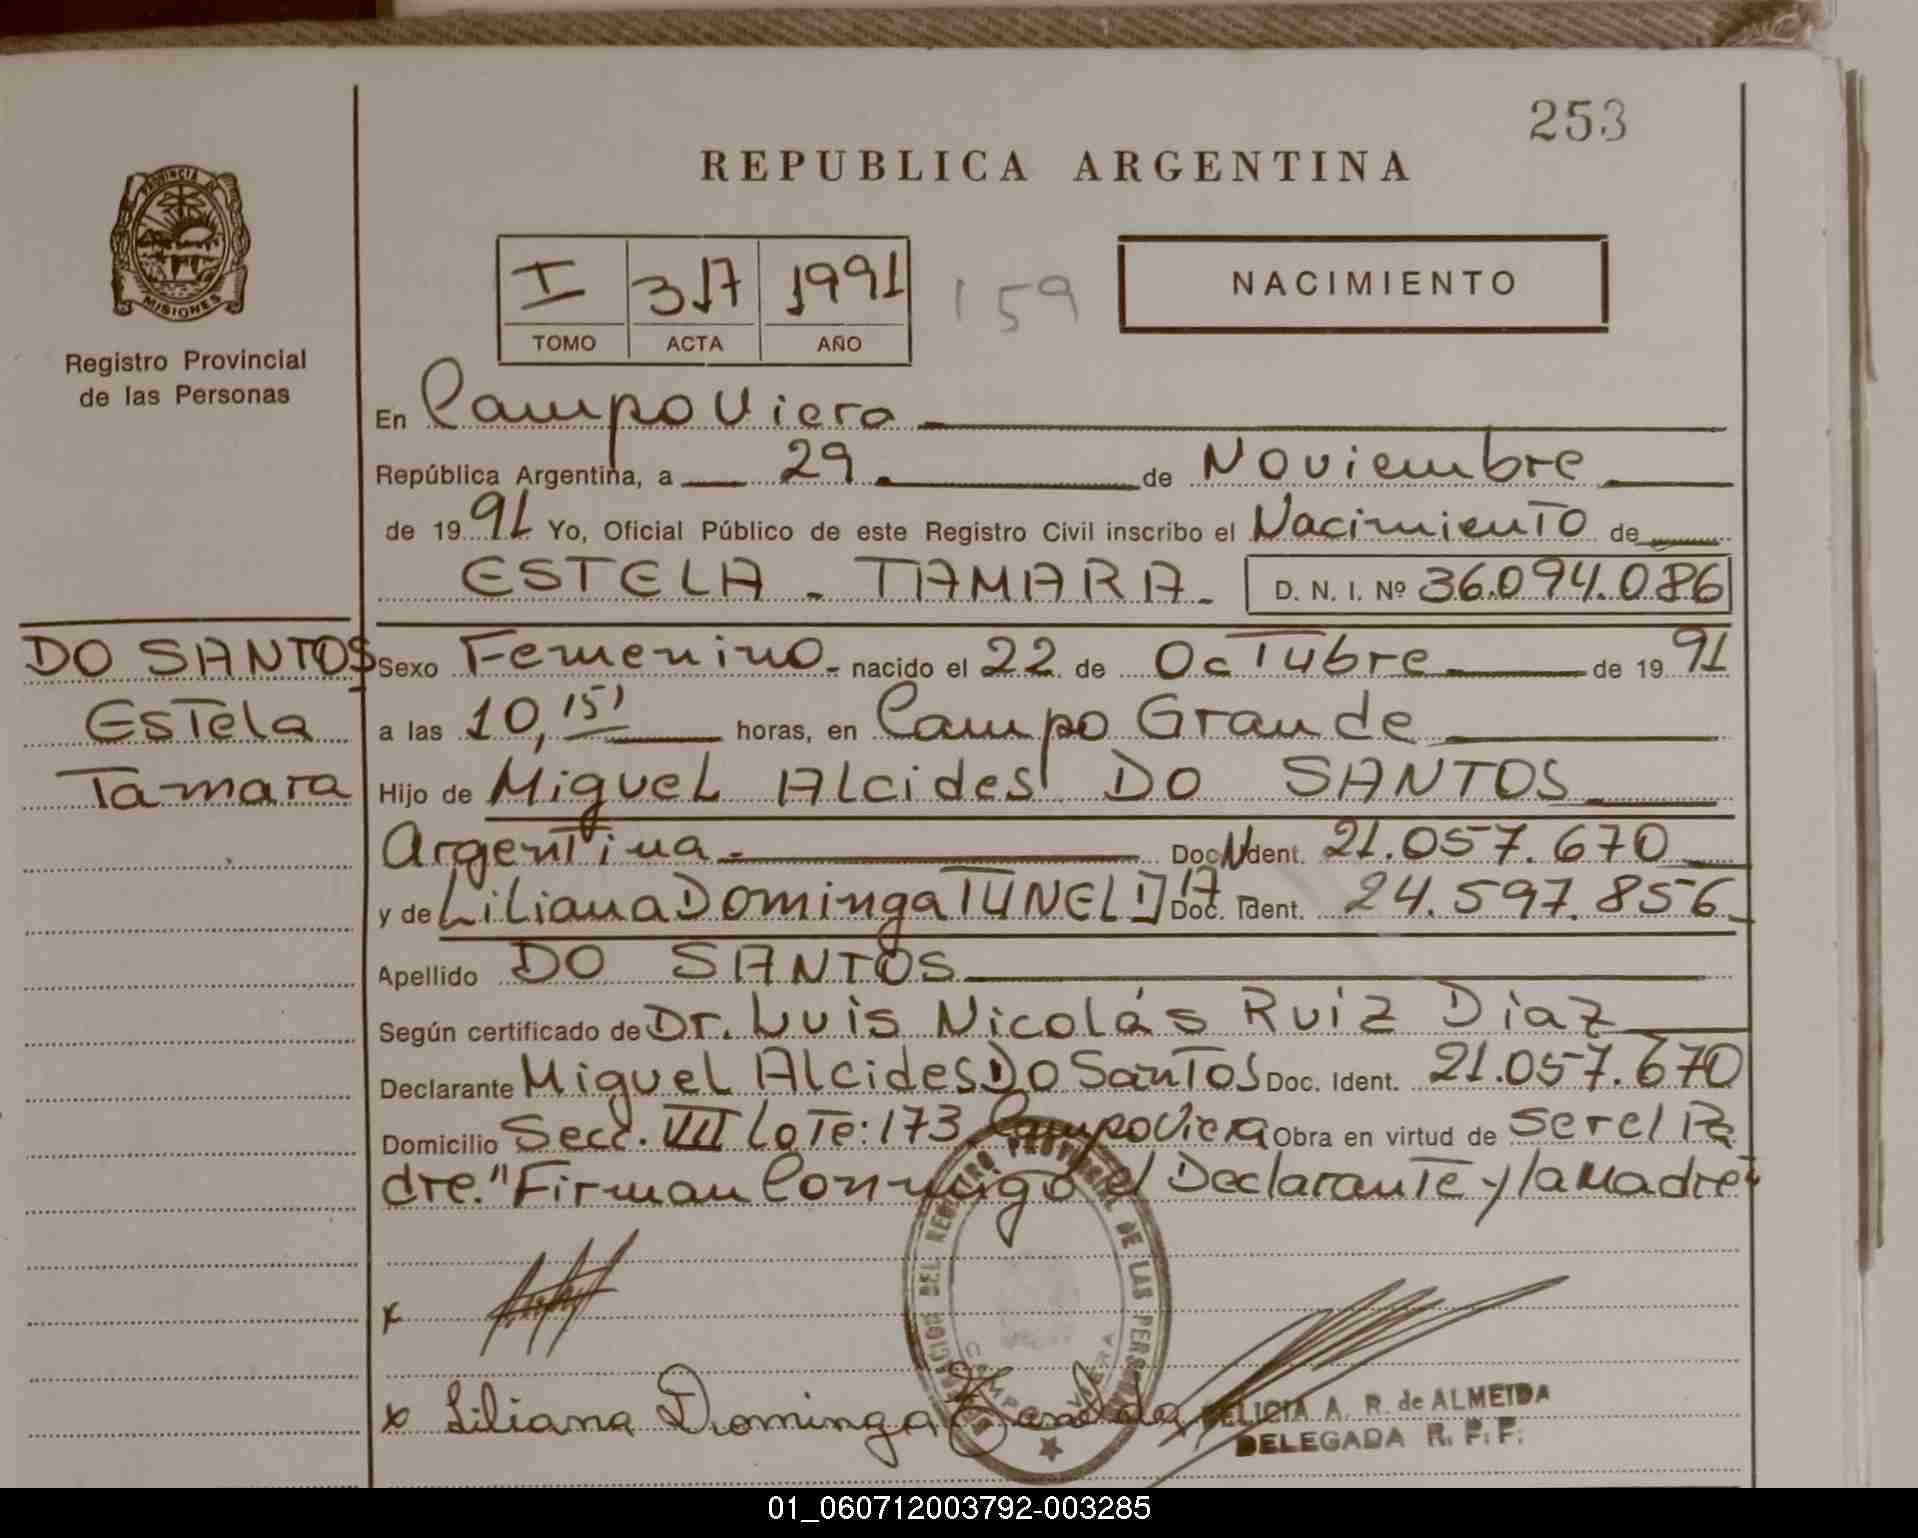 253
REPUBLICA ARGENTINA
PROVINCIA DE
MISIONES
Registro Provincial
de las Personas
I 317 1991
TOMO ACTA AÑO
159
NACIMIENTO
En Campo Viera
República Argentina, a 29 de Noviembre
de 1991 Yo, Oficial Público de este Registro Civil inscribo el Nacimiento de
ESTELA - TAMARA - D. N. I. Nº 36.094.086
DO SANTOS
Estela
Tamara
Sexo Femenino - nacido el 22 de Octubre de 1991
a las 10,15' horas, en Campo Grande
Hijo de Miguel Alcides DO SANTOS
Argentina - Doc. Ident. 21.057.670
y de Liliana Dominga Doc. Ident. 24.597.856
Apellido DO SANTOS
Según certificado de Dr. Luis Nicolás Ruiz Diaz
Declarante Miguel Alcides Do Santos Doc. Ident. 21.057.670
Domicilio Secc. VIII Lote: 173 Campo Viera Obra en virtud de ser el Pa
dre." Firman Conmigo el Declarante y la Madre"
x
x Liliana Dominga
DEL REGISTRO PROVINCIAL DE LAS PERSONAS
CAMPO VIERA
FELICIA A. R. de ALMEIDA
DELEGADA R. P. F.
01_060712003792-003285